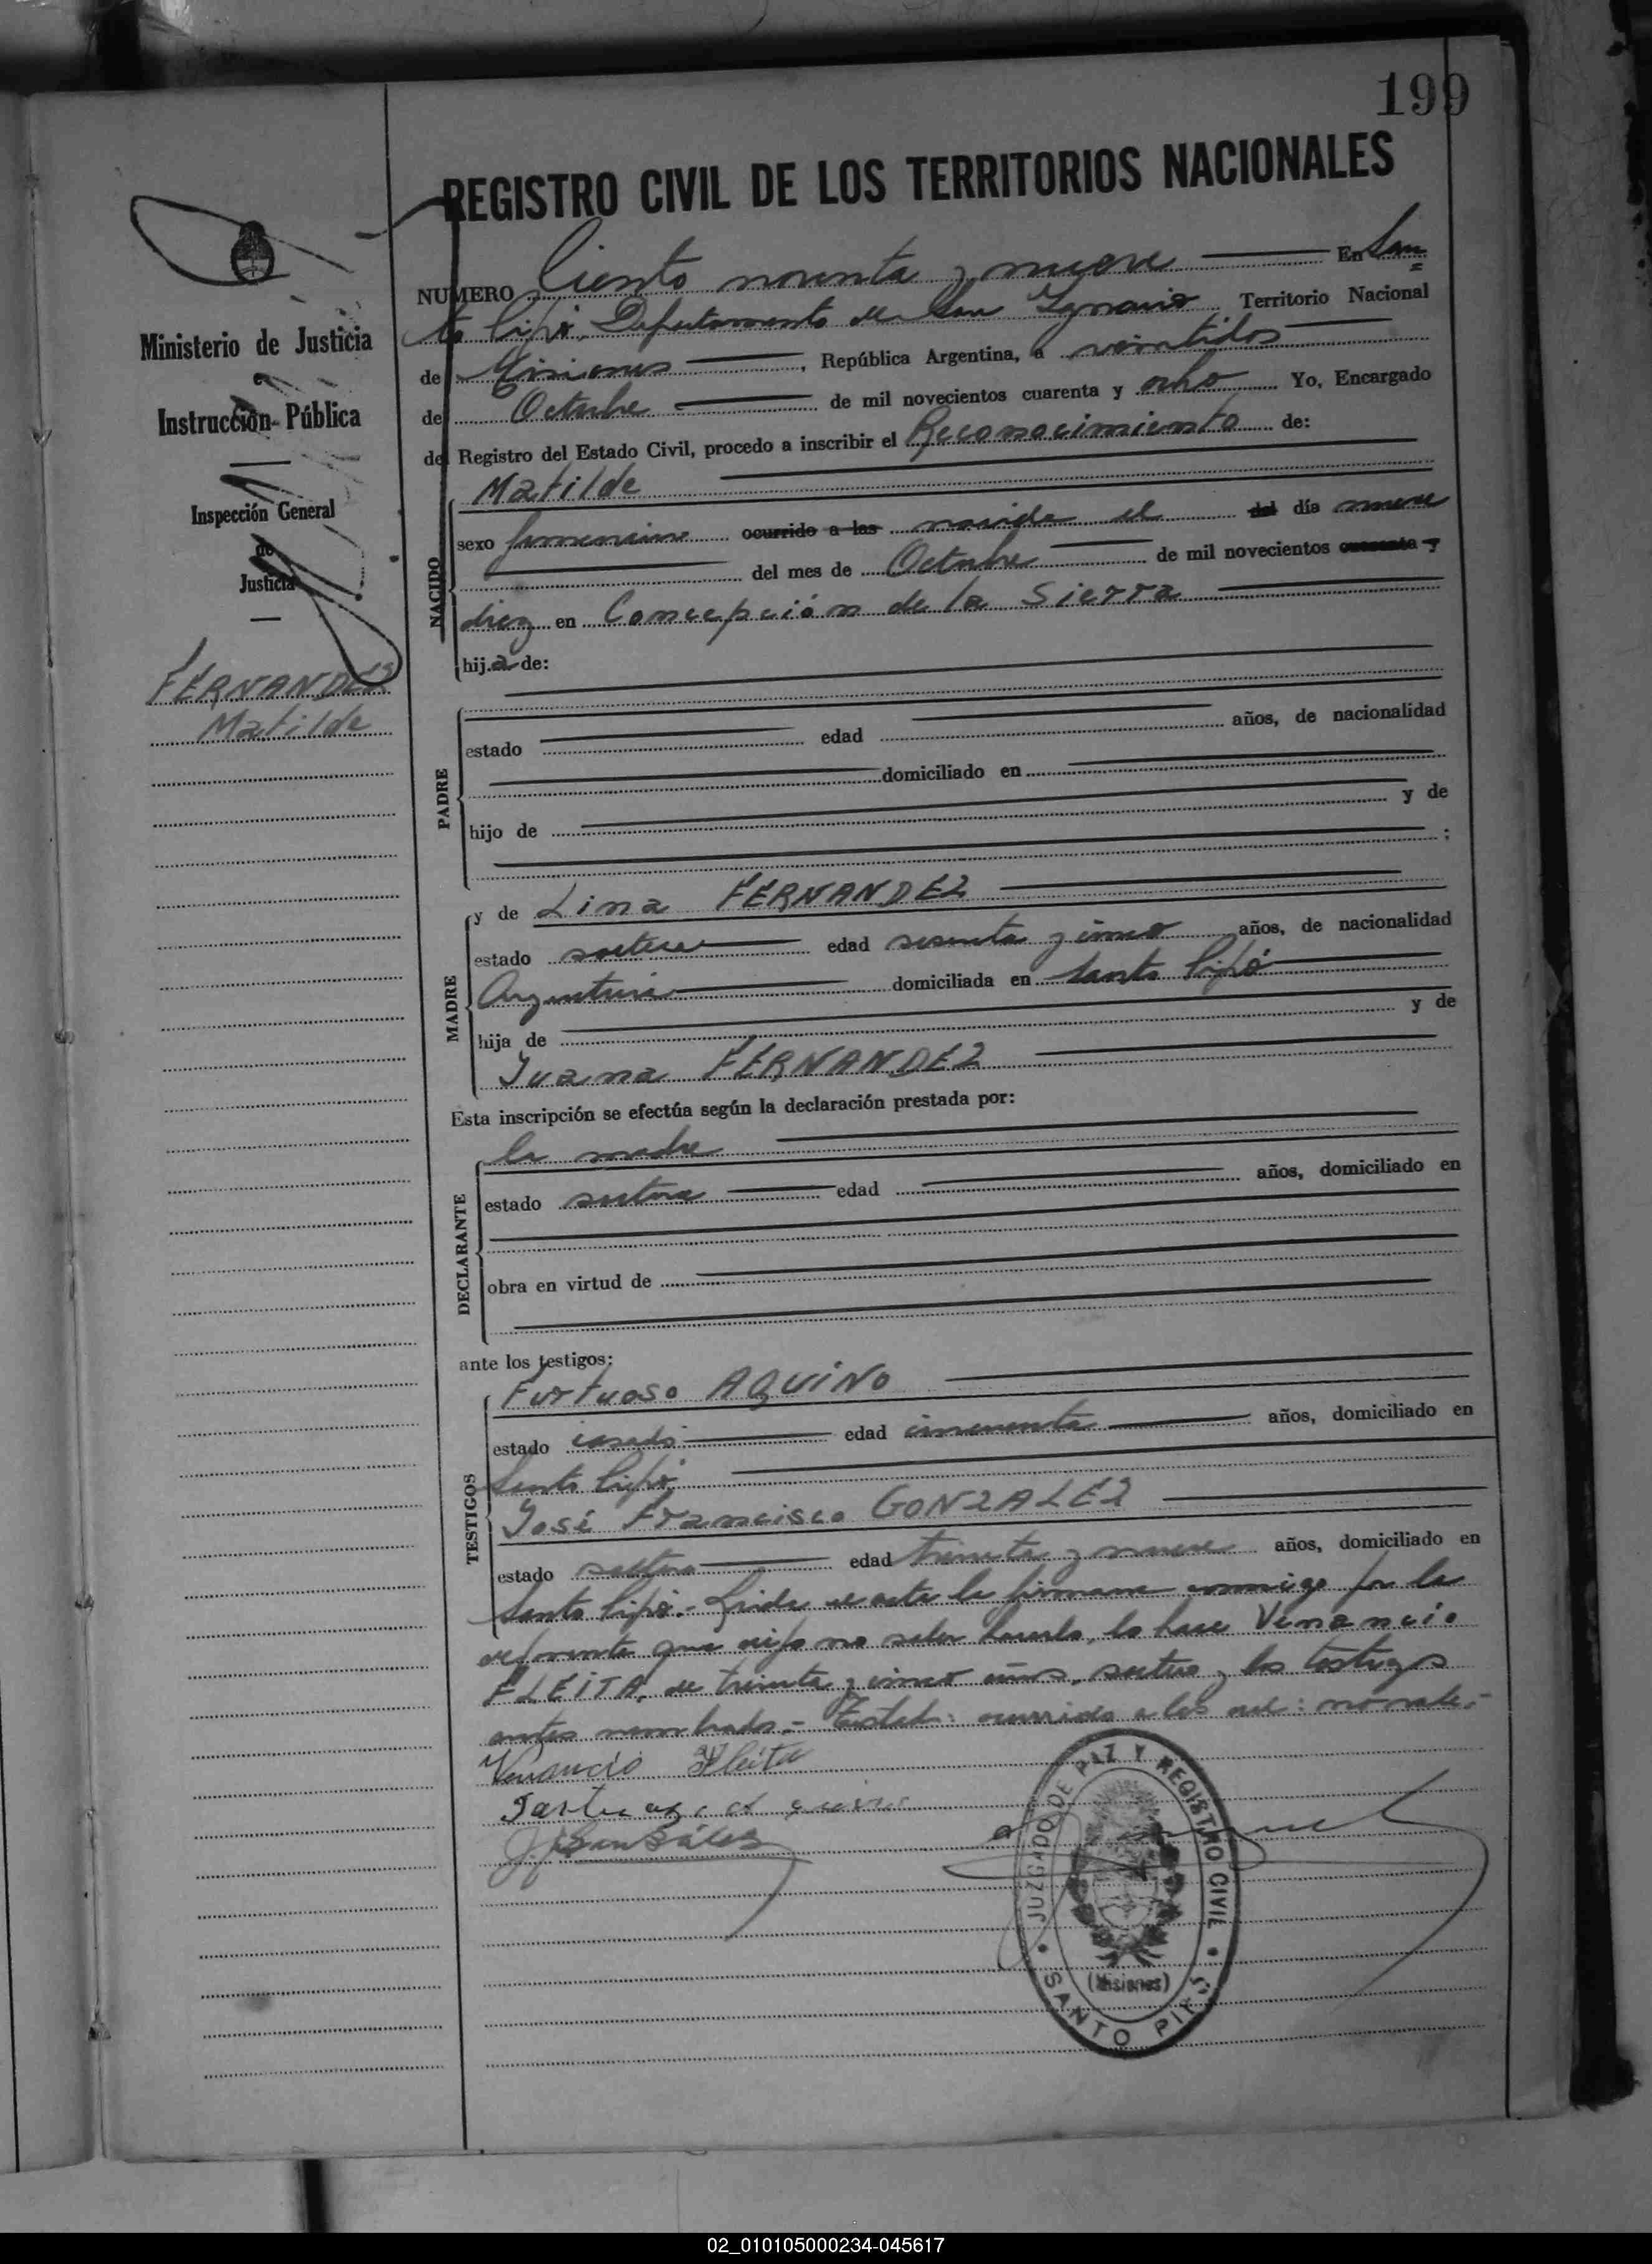 199
REGISTRO CIVIL DE LOS TERRITORIOS NACIONALES
Ministerio de Justicia
e
Instrucción Pública
Inspección General
de
Justicia
FERNANDEZ
Matilde
NUMERO Ciento noventa y nueve En San=
to Pipó, Departamento de San Ignacio Territorio Nacional
de Misiones, República Argentina, a veintidos
de Octubre de mil novecientos cuarenta y ocho Yo, Encargado
del Registro del Estado Civil, procedo a inscribir el Reconocimiento de:
Matilde
NACIDO
sexo femenino ocurrido a las nacida el del día nueve
del mes de Octubre de mil novecientos cuarenta y
diez en Concepción de la Sierra
hija de:
PADRE
estado edad años, de nacionalidad
domiciliado en
hijo de y de
;
MADRE
y de Lina FERNANDEZ
estado soltera edad sesenta y cinco años, de nacionalidad
Argentina domiciliada en Santo Pipó
hija de y de
Juana FERNANDEZ
Esta inscripción se efectúa según la declaración prestada por:
DECLARANTE
la madre
estado soltera edad años, domiciliado en
obra en virtud de
ante los testigos:
TESTIGOS
Furtuoso AQUINO
estado casado edad cincuenta años, domiciliado en
Santo Pipó,
José Francisco GONZALEZ
estado soltero edad treinta y nueve años, domiciliado en
Santo Pipó.- Leída el acta la firmaron conmigo por la
deponente que dijo no saber hacerlo, lo hace Venancio
FLEITA, de treinta y cinco años, soltero y los testigos
antes nombrados.- Testado: ocurrido a las del: no vale.-
Venancio Fleita
J. F. González
JUZGADO DE PAZ Y REGISTRO CIVIL
(Misiones)
SANTO PIPÓ
02_010105000234-045617